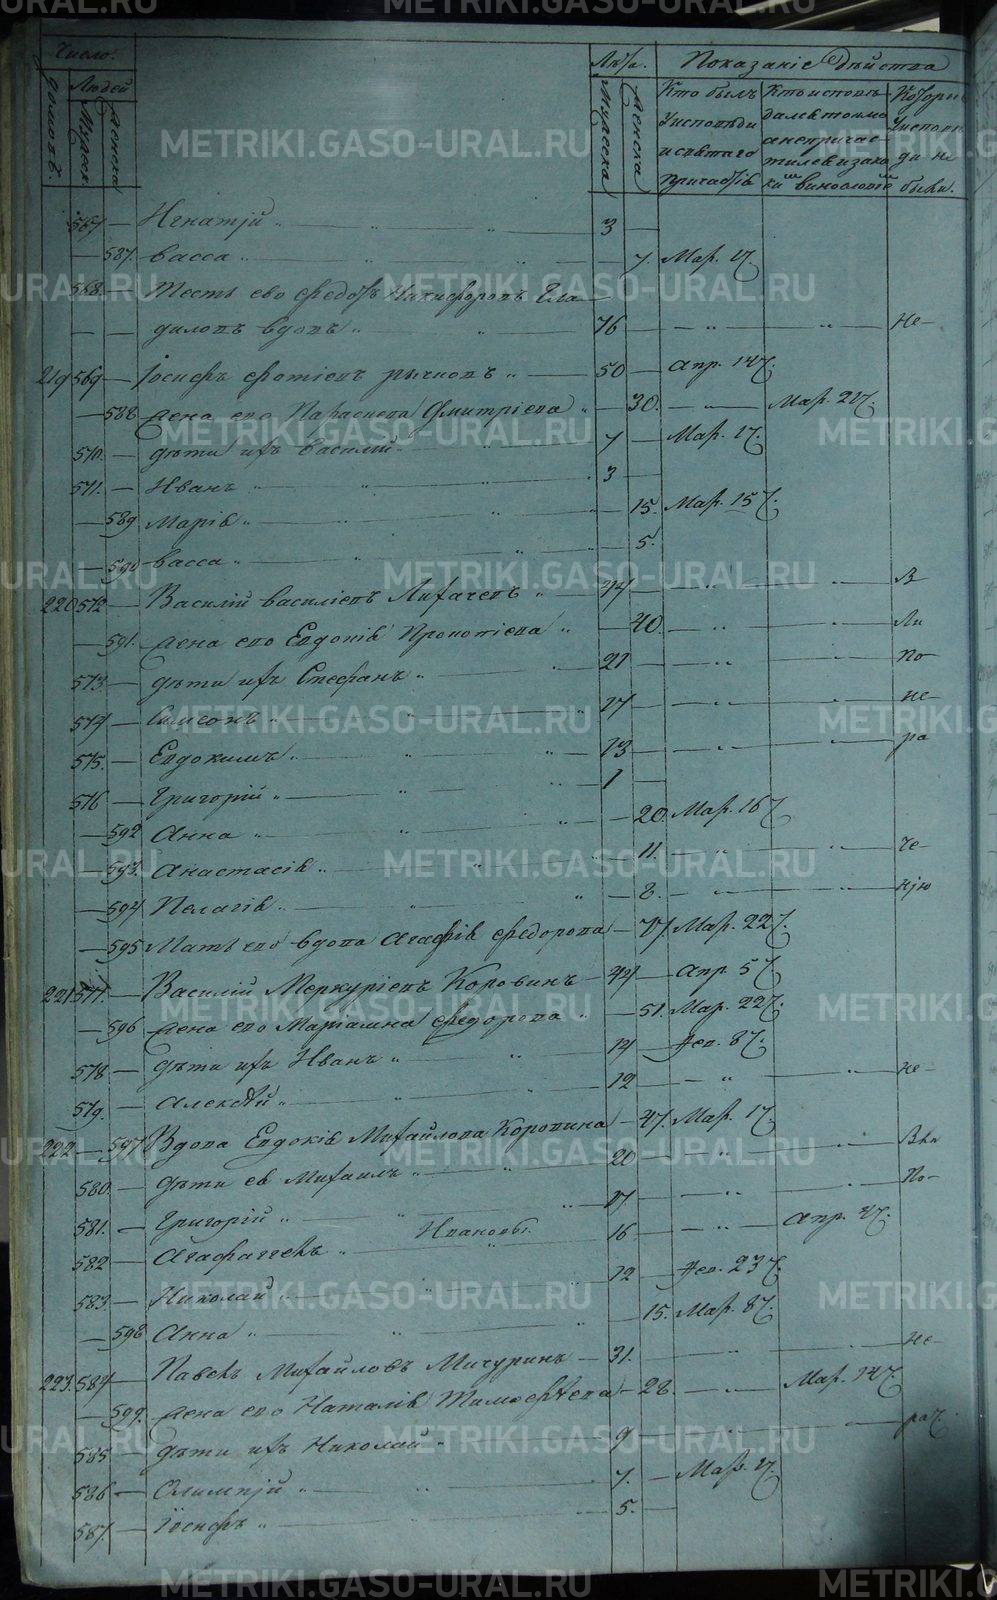 Число.
Людей
домовъ.
Мужеск.
Женска
Лѣта.
Мужеска
Женска
Показаніе Дѣйства
Кто былъ
у исповѣди
и святаго
причастія
Кто исповѣ-
дался токмо
а не причас-
тился и за ка-
кимъ винословіе
Которы
у исповѣ
ди не
были.
567 — Игнатій „ „ „ 3 —
— 587. Васса „ „ „ — 7. Мар. 17.
568. — Тесть его Ѳедотъ Никифоровъ Гла-
— — диловъ вдовъ „ „ 76 — — „ „ не-
219 569 — Іосифъ Фотіевъ Рычковъ „ — 50 — Апр. 14.
— 588 Жена его Параскева Дмитріева „ — 30. — „ — Мар. 21.
570. — дѣти ихъ Василій „ „ 7 — Мар. 17.
571. — Иванъ „ „ „ 3 —
— 589 Марія „ „ „ — 15. Мар. 15.
— 590 Васса „ „ „ — 5.
220 572 — Василій Васильевъ Лихачевъ „ — 44 — „ „ В
— 591. Жена его Евдокія Прокопіева „ — 40. — „ „ Ли
573. — дѣти ихъ Стефанъ „ „ 21 — „ „ по-
574 — Симеонъ „ „ „ 17 — „ „ не-
575. — Евдокимъ „ „ „ 13 — „ „ ра
576 — Григорій „ „ „ 1 —
— 592 Анна „ „ „ — 20. Мар. 16
— 593. Анастасія „ „ „ — 11. — „ „ че-
— 594 Пелагія „ „ „ — 8. — „ „ нію
— 595 Мать его вдова Агафія Ѳедорова — 77. Мар. 22.
221 577. — Василій Меркуріевъ Коровинъ — 44 — Апр 5
— 596 Жена его Маріамна Ѳедорова „ — 51. Мар. 22.
578 — дѣти ихъ Иванъ „ „ 14 — Фев. 8.
579. — Алексѣй „ „ „ 12 — „ „ не-
222 — 597 Вдова Евдокія Михайлова Коровина — 47. Мар. 17.
580. — дѣти ея Михаилъ „ „ 20 — „ „
581. — Григорій „ „ „ 17 — „ „ По-
Ивановы.
582 — Агафаггелъ „ „ 16 — „ — Апр. 4.
583. — Николай „ „ „ 12 — Фев. 23.
— 598 Анна „ „ „ — 15. Мар. 8.
223. 584 — Павелъ Михайловъ Мичуринъ — 31. — „ „ не-
— 599. Жена его Наталія Тимофѣева — 28. — „ — Мар. 14.
585 — дѣти ихъ Николай „ 9. — „ „ рач.
586 — Олимпій „ „ „ 7. — Мар. 17.
587. — Іосифъ „ „ „ 5. —
METRIKI.GASO-URAL.RU